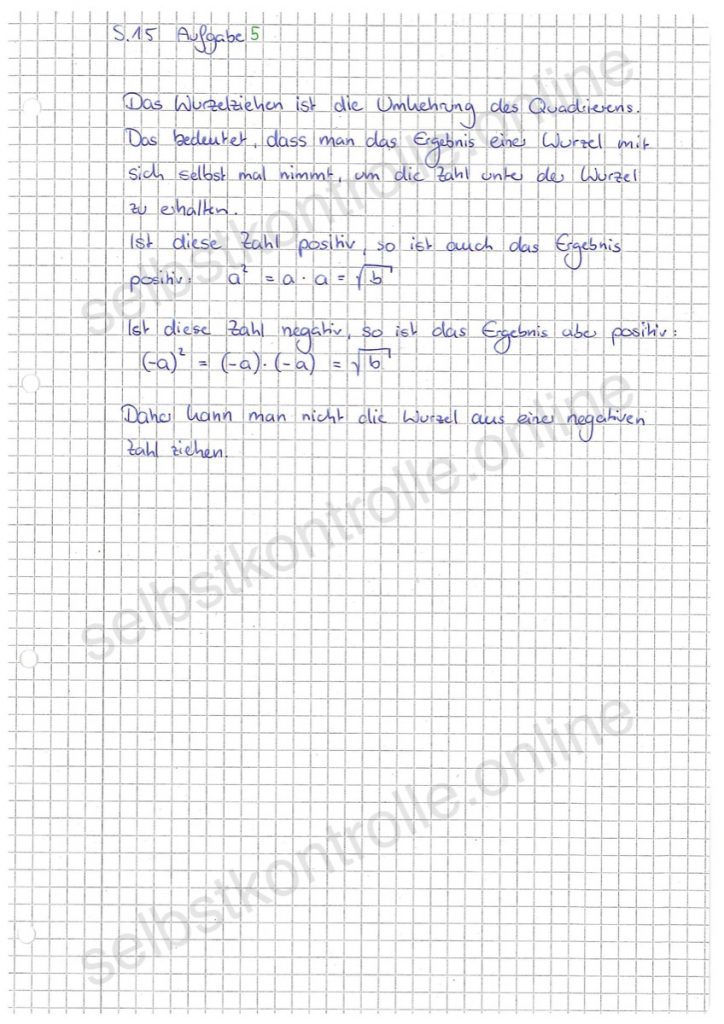 S.15 Aufgabe 5
Das Wurzelziehen ist die Umkehrung des Quadrierens.
Das bedeutet, dass man das Ergebnis einer Wurzel mit
sich selbst mal nimmt, um die Zahl unter der Wurzel
zu erhalten.
Ist diese Zahl positiv, so ist auch das Ergebnis
positiv: a² = a · a = √b
Ist diese Zahl negativ, so ist das Ergebnis aber positiv:
(-a)² = (-a) · (-a) = √b
Daher kann man nicht die Wurzel aus einer negativen
Zahl ziehen.
selbstkontrolle.online
selbstkontrolle.online
selbstkontrolle.online